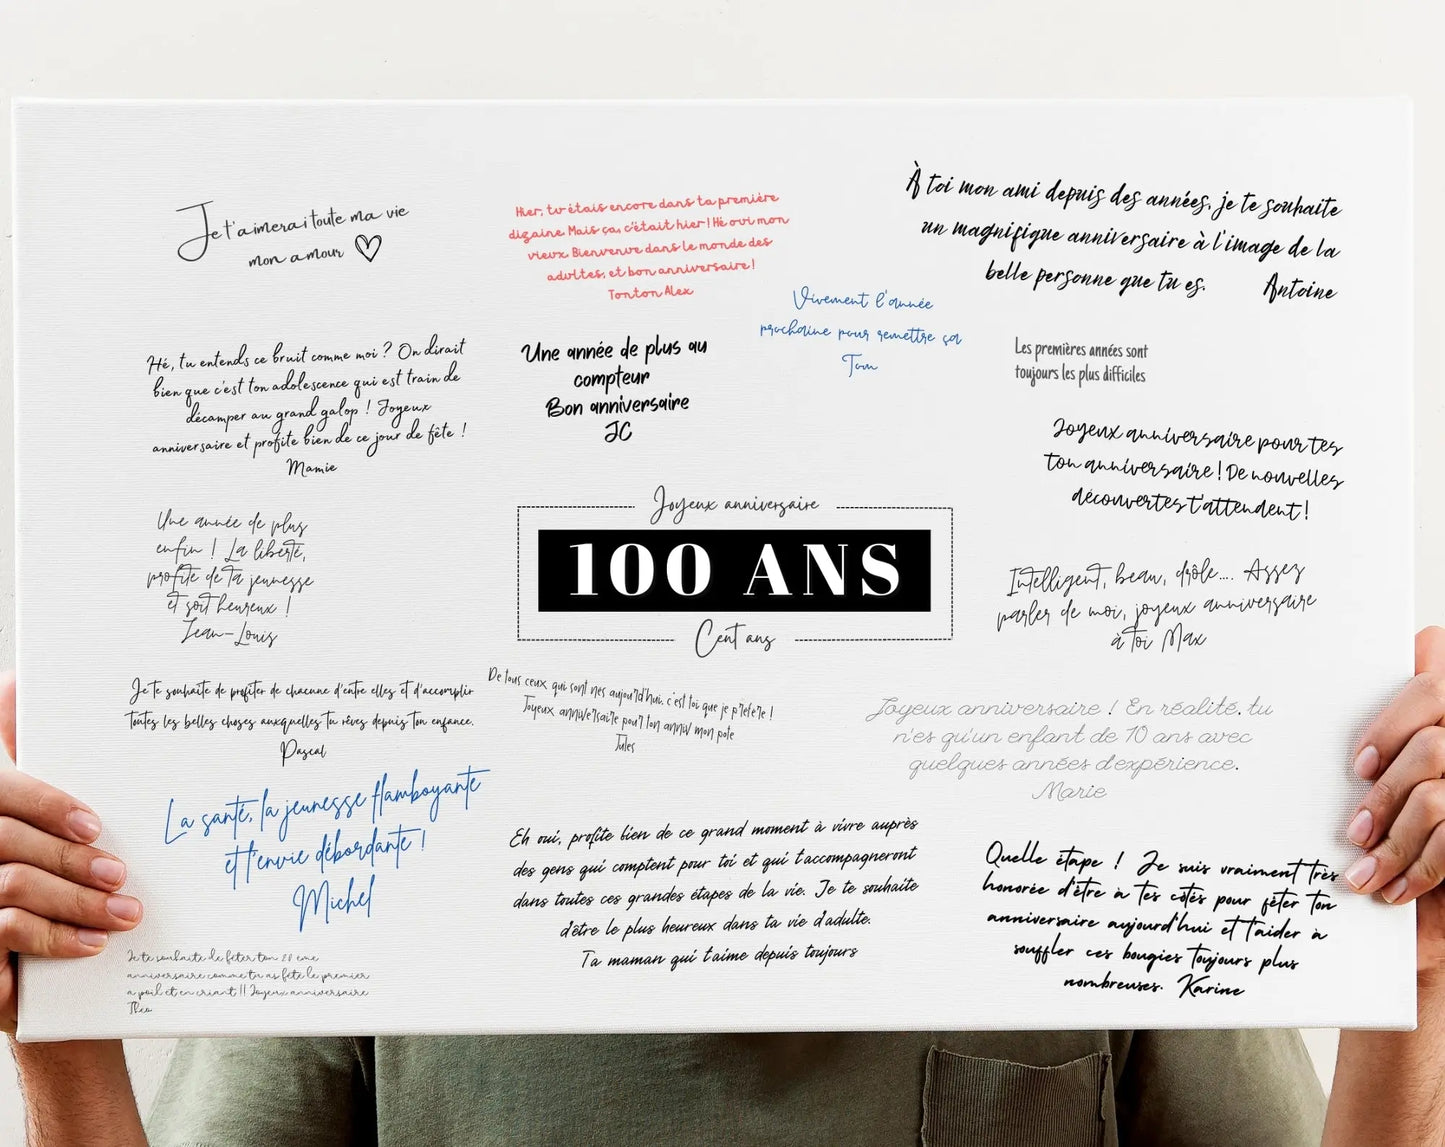 Je t'aimerai toute ma vie
mon amour
Hier, tu étais encore dans ta première
dizaine. Mais ça, c'était hier ! Hé oui mon
vieux. Bienvenue dans le monde des
adultes, et bon anniversaire !
Tonton Alex
À toi mon ami depuis des années, je te souhaite
un magnifique anniversaire à l'image de la
belle personne que tu es. Antoine
Vivement l'année
prochaine pour remettre ça
Tom
Hé, tu entends ce bruit comme moi ? On dirait
bien que c'est ton adolescence qui est train de
décamper au grand galop ! Joyeux
anniversaire et profite bien de ce jour de fête !
Mamie
Une année de plus au
compteur
Bon anniversaire
JC
Les premières années sont
toujours les plus difficiles
Joyeux anniversaire pour tes
ton anniversaire ! De nouvelles
découvertes t'attendent !
Une année de plus
enfin ! La liberté,
profite de ta jeunesse
et soit heureux !
Jean-Louis
Joyeux anniversaire
100 ANS
Cent ans
Intelligent, beau, drôle.... Assez
parler de moi, joyeux anniversaire
à toi Max
Je te souhaite de profiter de chacune d'entre elles et d'accomplir
toutes les belles choses auxquelles tu rêves depuis ton enfance.
Pascal
De tous ceux qui sont nés aujourd'hui, c'est toi que je préfère !
Joyeux anniversaire pour ton anniv mon pote
Jules
Joyeux anniversaire ! En réalité, tu
n'es qu'un enfant de 10 ans avec
quelques années d'expérience.
Marie
La santé, la jeunesse flamboyante
et l'envie débordante !
Michel
Eh oui, profite bien de ce grand moment à vivre auprès
des gens qui comptent pour toi et qui t'accompagneront
dans toutes ces grandes étapes de la vie. Je te souhaite
d'être le plus heureux dans ta vie d'adulte.
Ta maman qui t'aime depuis toujours
Quelle étape ! Je suis vraiment très
honorée d'être à tes côtés pour fêter ton
anniversaire aujourd'hui et t'aider à
souffler ces bougies toujours plus
nombreuses. Karine
Je te souhaite de fêter ton 20 ème
anniversaire comme tu as fêté le premier
a poil et en criant !! Joyeux anniversaire
Théo